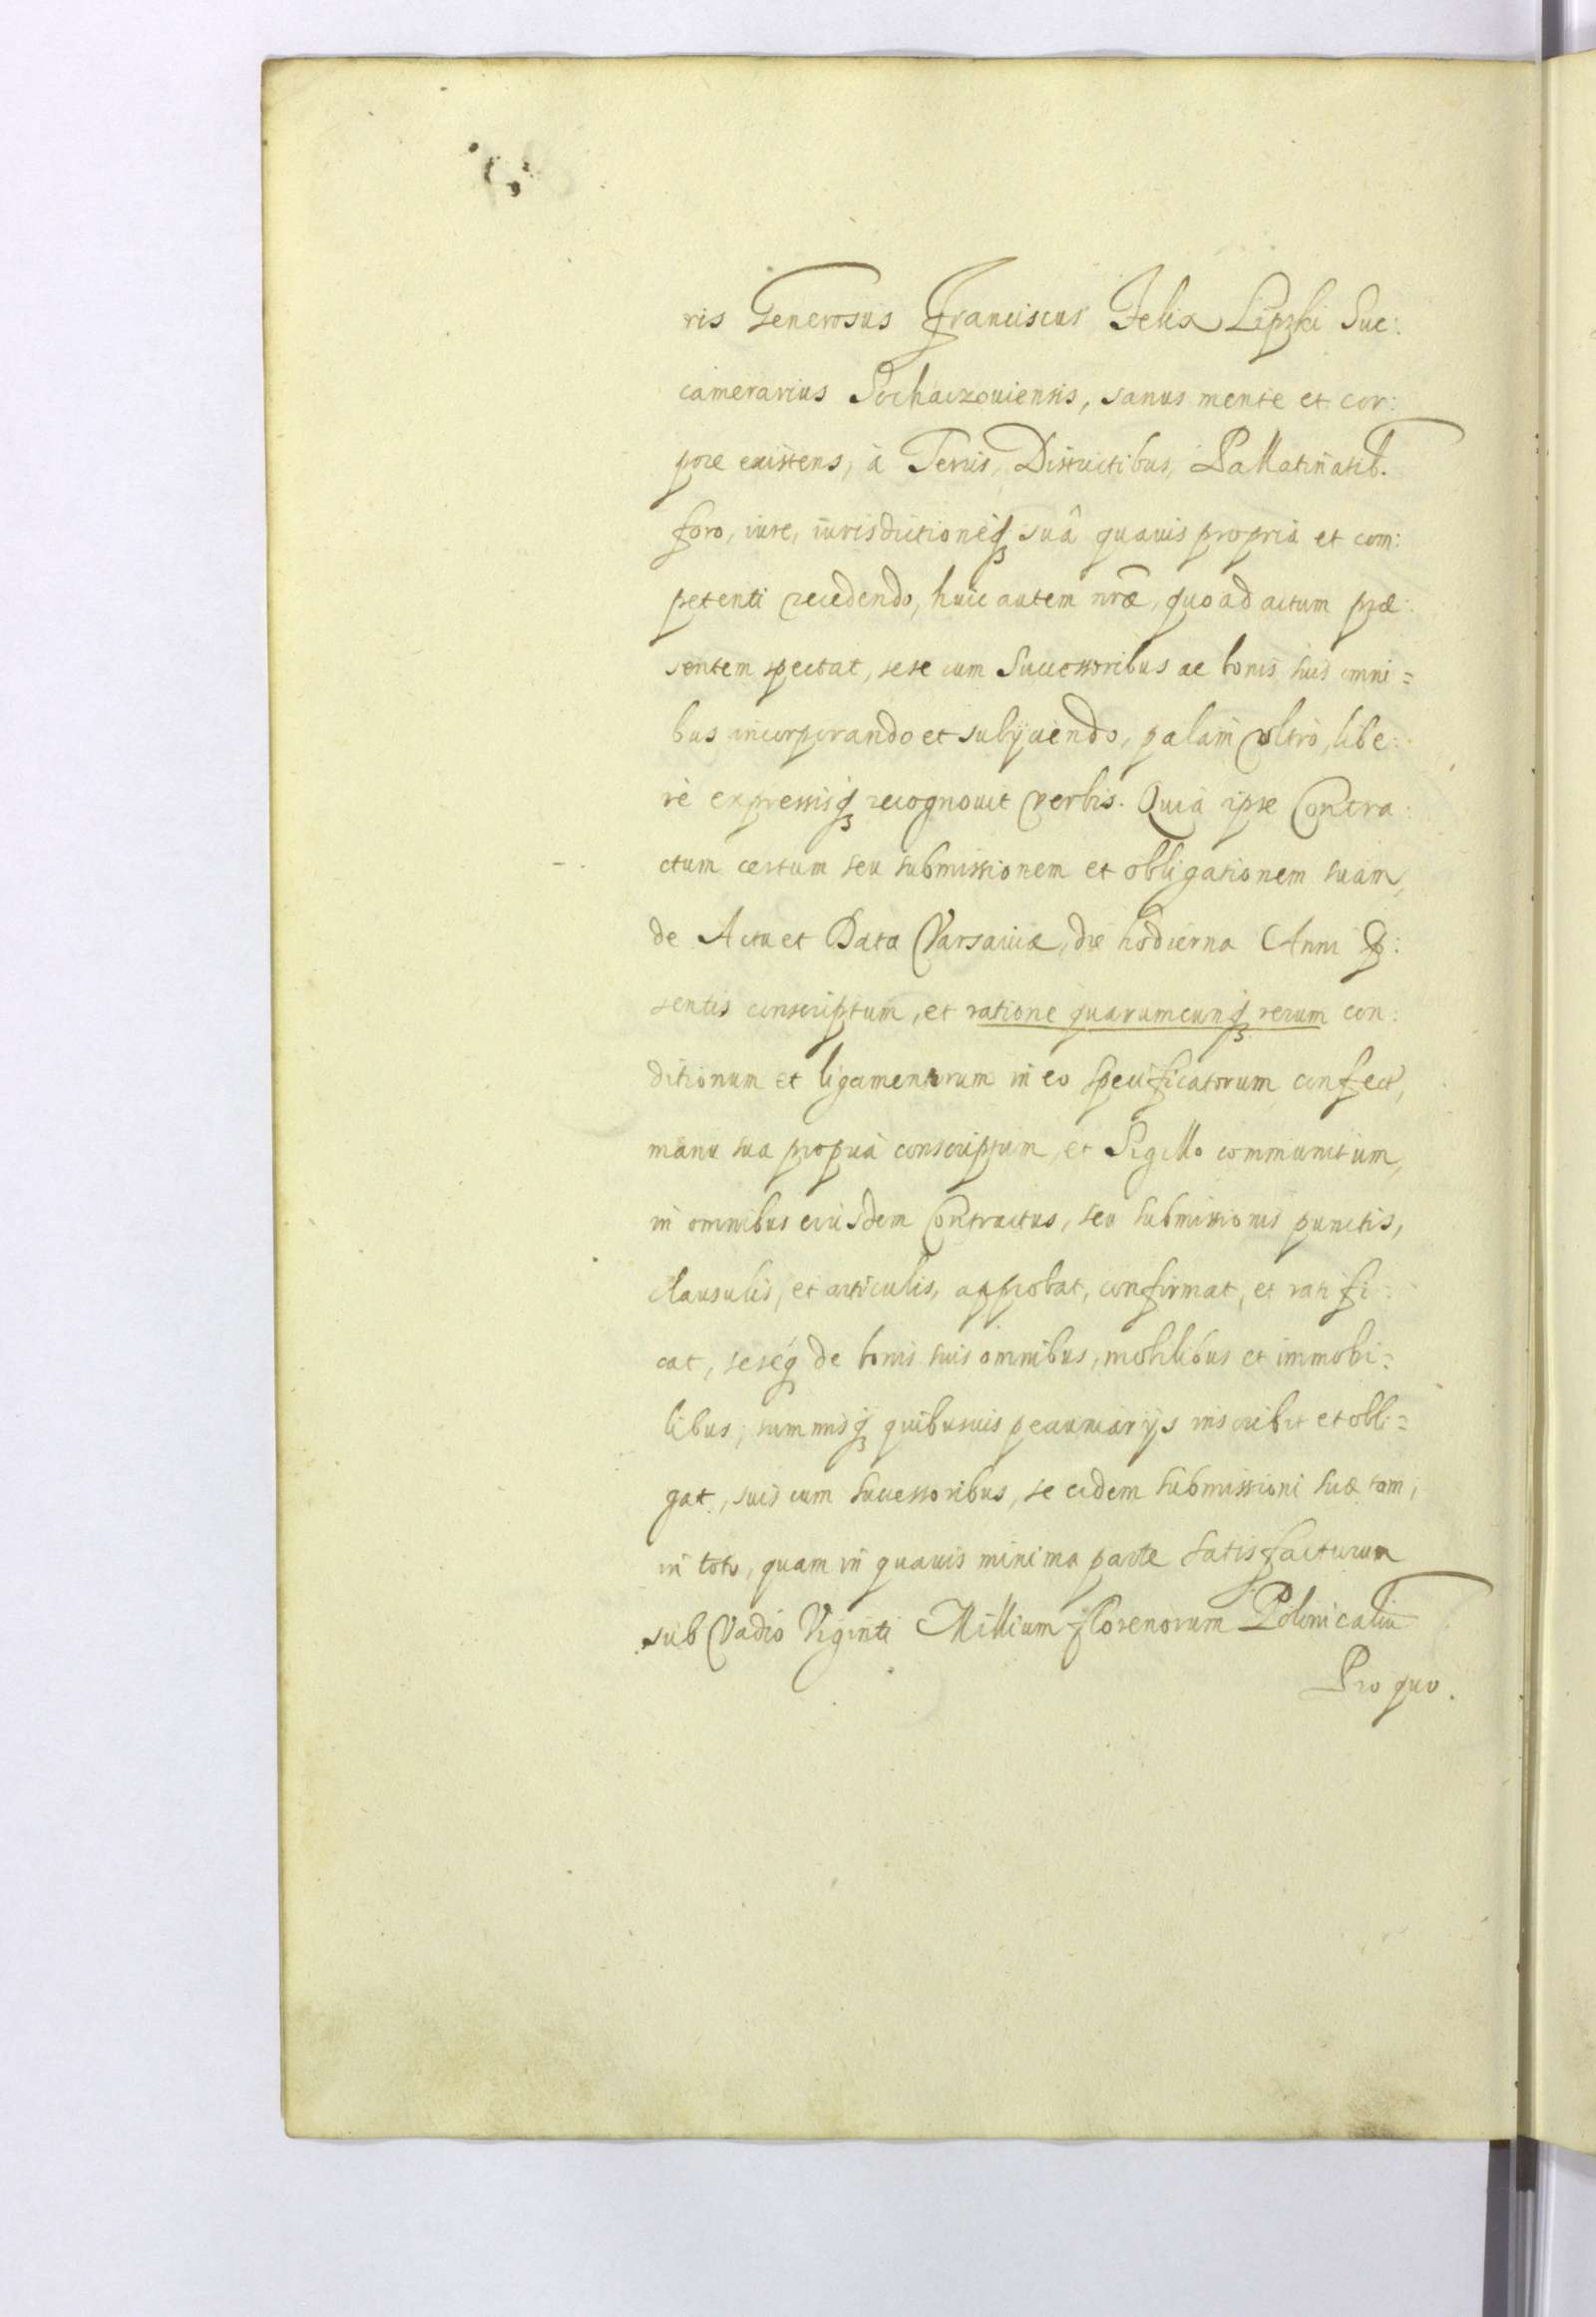 ris Generosus Franciscus Felix Lipski Suc:
camerarius Sochaczouiensis, sanus mente et cor:
pore existens, à Terris, Districtibus, Pallatinatib.
foro, iure, iurisdictioneq₃ suâ quauis propriâ et com:
petenti recedendo, huic autem nræ, quo ad actum præ:
sentem spectat, sese cum Successoribus ac bonis suis omni=
bus incorporando et subÿciendo, palam ultrò, libe:
rè expressisq₃ recognouit verbis. Quia ipse Contra:
ctum certum seu submissionem et obligationem suam,
de Actu et Data Varsauiæ, die hodierna Anni p̃:
sentis conscriptum, et ratione quarumcunq₃ rerum con:
ditionum et ligamentorum in eo specificatorum confect,
manu sua propriâ conscriptum, et Sigillo communitum,
in omnibus eiusdem Contractus, seu submissionis punctis,
clausulis, et articulis, approbat, confirmat, et ratifi:
cat, seseq₃ de bonis suis omnibus, mobilibus et immobi:
libus, summisq₃ quibusuis pecuniarÿs inscribit et obli=
gat, suis cum successoribus, se eidem submissioni suæ tam,
in toto, quam in quauis minima parte satisfacturum
sub Vadio Viginti Millium florenorum Polonicaliũ
Pro quo.